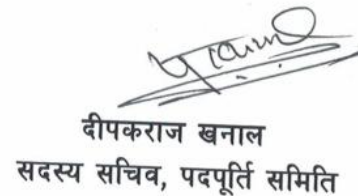 दीपकराज खनाल
सदस्य सचिव, पदपूर्ति समिति